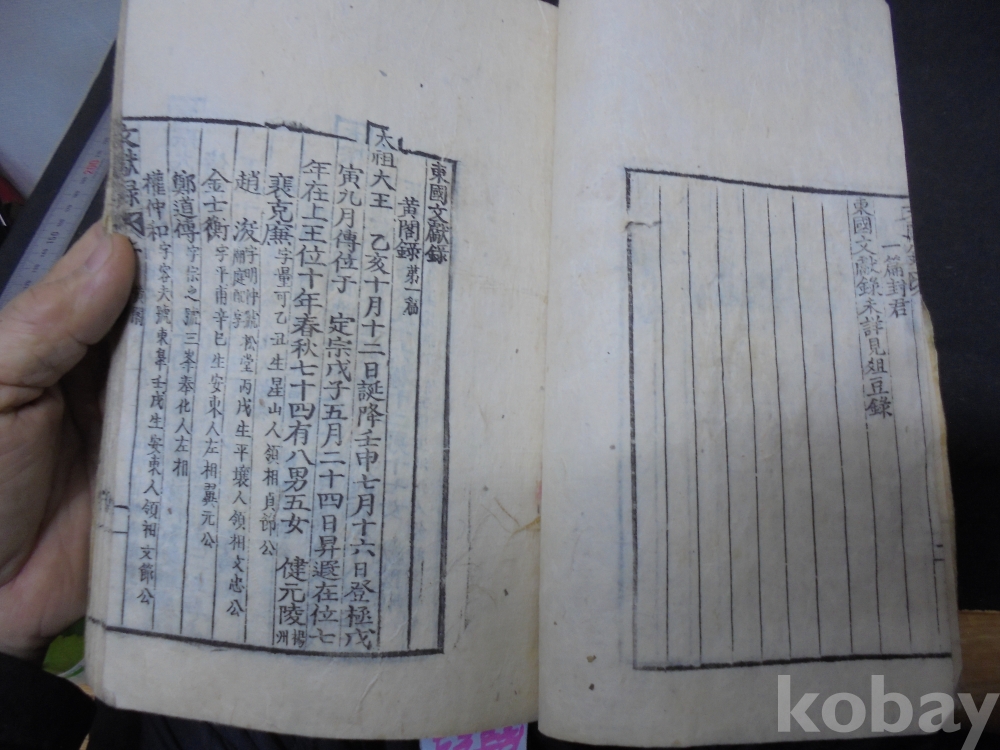 一篇封君
東國文獻錄未詳見俎豆錄
東國文獻錄
黃閣錄第一編
太祖大王 乙亥十月十二日誕降壬申七月十六日登極戊
寅九月傳位于 定宗戊子五月二十四日昇遐在位七
年在上王位十年春秋七十四有八男五女 健元陵楊州
裵克廉字量可乙丑生星山人領相貞節公
趙浚字明仲號松堂丙戌生平壤人領相文忠公
金士衡字平甫辛巳生安東人左相翼元公
鄭道傳字宗之號三峯奉化人左相
權仲和字容夫號東皐壬戌生安東人領相文節公
文獻錄
kobay